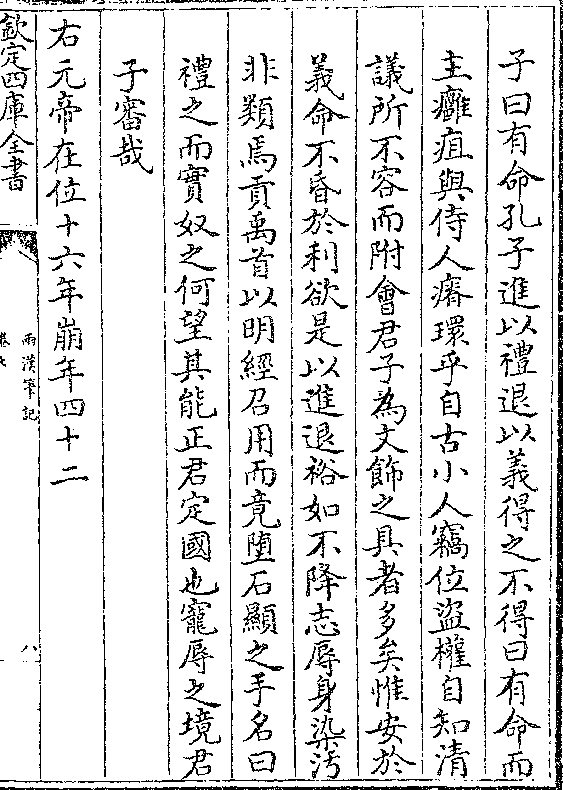 子曰有命孔子進以禮退以義得之不得曰有命而
主癰疽與侍人瘠環乎自古小人竊位盜權自知清
議所不容而附會君子為文飾之具者多矣惟安於
義命不昏於利欲是以進退裕如不降志辱身染汚
非類焉貢禹首以明經召用而竟墮石顯之手名曰
禮之而實奴之何望其能正君定國也寵辱之境君
子審哉
右元帝在位十六年崩年四十二
欽定四庫全書
兩漢筆記
八